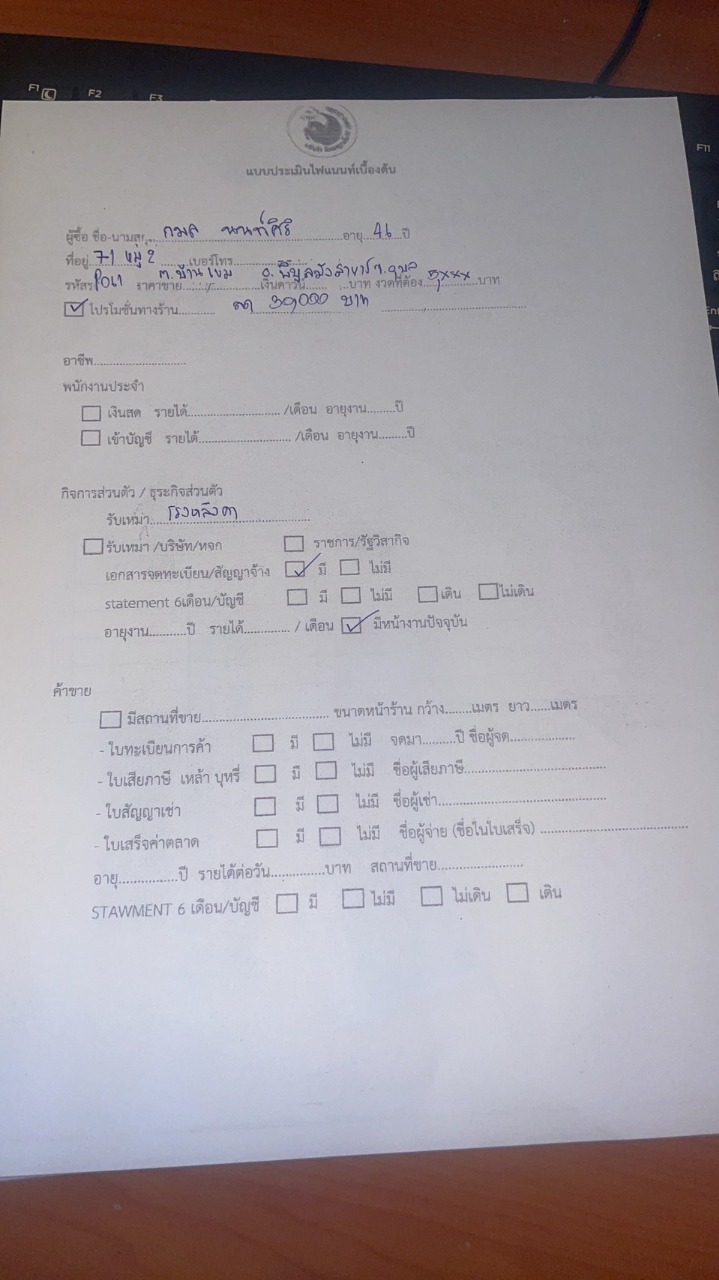 F1 F2 F3 F11
แบบประเมินไฟแนนท์เบื้องต้น
ผู้ซื้อ ชื่อ-นามสกุล กมล นนท์ศิริ อายุ 46 ปี
ที่อยู่ 71 หมู่ 2 เบอร์โทร
ต.บ้านแขม อ.พิบูลมังสาหาร จ.อุบล
รหัสรถ P061 ราคาขาย เงินดาวน์ บาท งวดที่ต้อง 5xxx บาท
โปรโมชั่นทางร้าน ลด 30,000 บาท
อาชีพ
พนักงานประจำ
เงินสด รายได้ /เดือน อายุงาน ปี
เข้าบัญชี รายได้ /เดือน อายุงาน ปี
กิจการส่วนตัว / ธุระกิจส่วนตัว
รับเหมา โรงหลังคา
รับเหมา /บริษัท/หจก ราชการ/รัฐวิสากิจ
เอกสารจดทะเบียน/สัญญาจ้าง มี ไม่มี
statement 6เดือน/บัญชี มี ไม่มี เดิน ไม่เดิน
อายุงาน ปี รายได้ / เดือน มีหน้างานปัจจุบัน
ค้าขาย
มีสถานที่ขาย ขนาดหน้าร้าน กว้าง เมตร ยาว เมตร
- ใบทะเบียนการค้า มี ไม่มี จดมา ปี ชื่อผู้จด
- ใบเสียภาษี เหล้า บุหรี่ มี ไม่มี ชื่อผู้เสียภาษี
- ใบสัญญาเช่า มี ไม่มี ชื่อผู้เช่า
- ใบเสร็จค่าตลาด มี ไม่มี ชื่อผู้จ่าย (ชื่อในใบเสร็จ)
อายุ ปี รายได้ต่อวัน บาท สถานที่ขาย
STAWMENT 6 เดือน/บัญชี มี ไม่มี ไม่เดิน เดิน